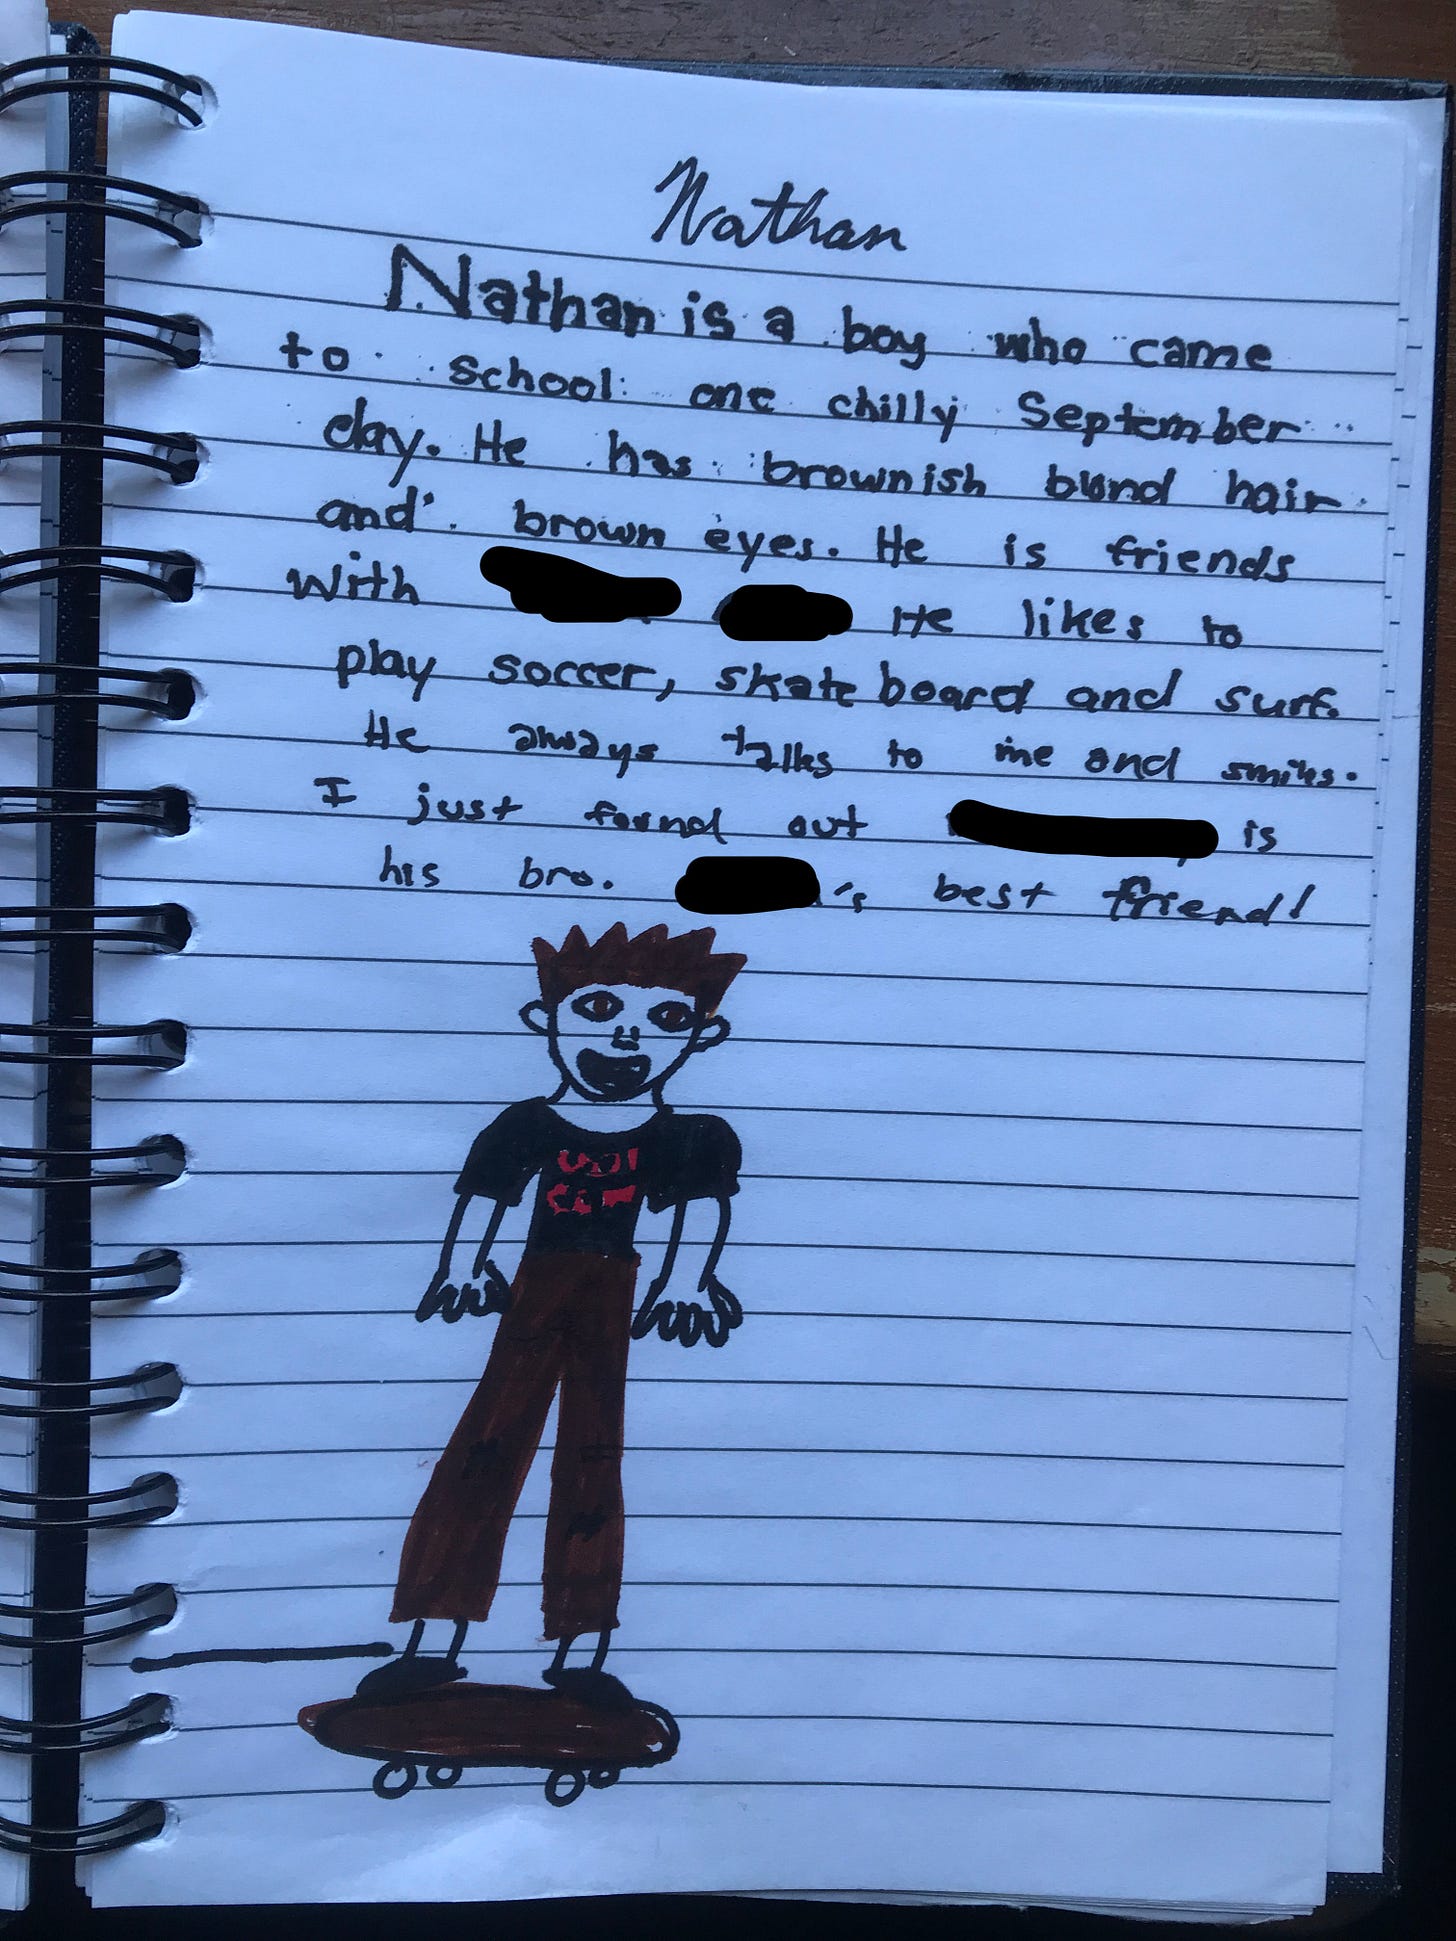 Nathan
Nathan is a boy who came
to school one chilly September
day. He has brownish blond hair
and brown eyes. He is friends
with He likes to
play soccer, skate board and surf.
He always talks to me and smiles.
I just found out is
his bro. 's best friend!